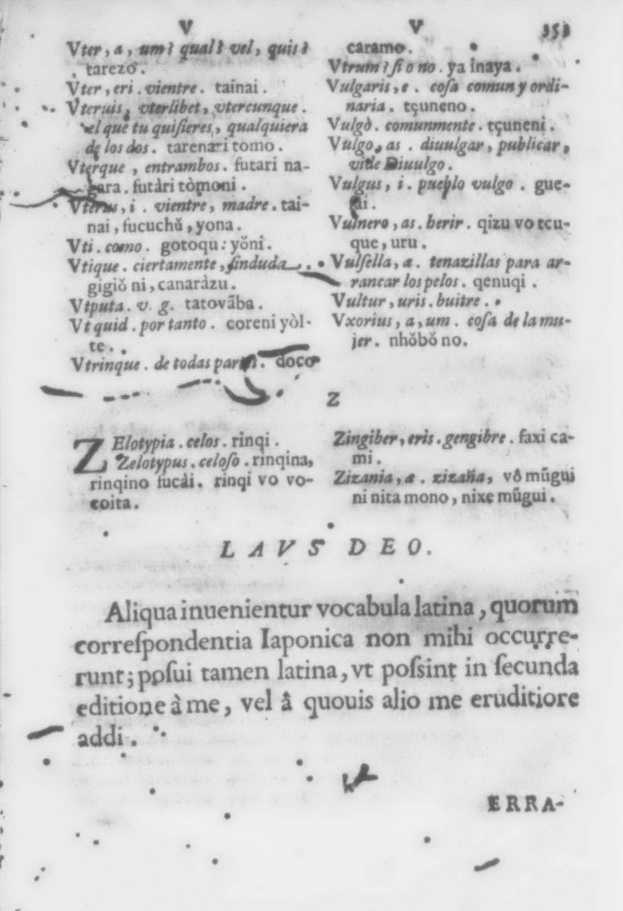 V
V 353
Vter, a, um? qual? vel, quis?
tarezo.
Vter, eri. vientre. tainai.
Vteruis, vterlibet, vtercunque.
el que tu quisieres, qualquiera
de los dos. tarenari tomo.
Vterque, entrambos. futari na-
gara. futàri tòmoni.
Vterus, i. vientre, madre. tai-
nai, fucuchǔ, yona.
Vti. como. gotoqu: yǒni.
Vtique. ciertamente, sinduda
gigiǒ ni, canaràzu.
Vtputa. v. g. tatovāba.
Vt quid. por tanto. coreni yòt-
te.
Vtrinque. de todas partes. doco
caramo.
Vtrum? si o no. ya inaya.
Vulgaris, e. cosa comun y ordi-
naria. tçuneno.
Vulgò. comunmente. tçuneni.
Vulgo, as. diuulgar, publicar,
vide Diuulgo.
Vulgus, i. pueblo vulgo. gue-
Vulnero, as. herir. qizu vo tcu-
que, uru.
Vulsella, æ. tenazillas para ar-
rancar los pelos. qenuqi.
Vultur, uris. buitre.
Vxorius, a, um. cosa de la mu-
jer. nhǒbǒ no.
Z
ZElotypia. celos. rinqi.
Zelotypus. celoso. rinqina,
rinqino fucài. rinqi vo vo-
coita.
Zingiber, eris. gengibre. faxi ca-
mi.
Zizania, æ. zizaña, vô mūgui
ni nita mono, nixe mūgui.
LAVS DEO.
Aliqua inuenientur vocabula latina, quorum
correspondentia Iaponica non mihi occurre-
runt; posui tamen latina, vt possint in secunda
editione à me, vel â quouis alio me eruditiore
addi.
ERRA-